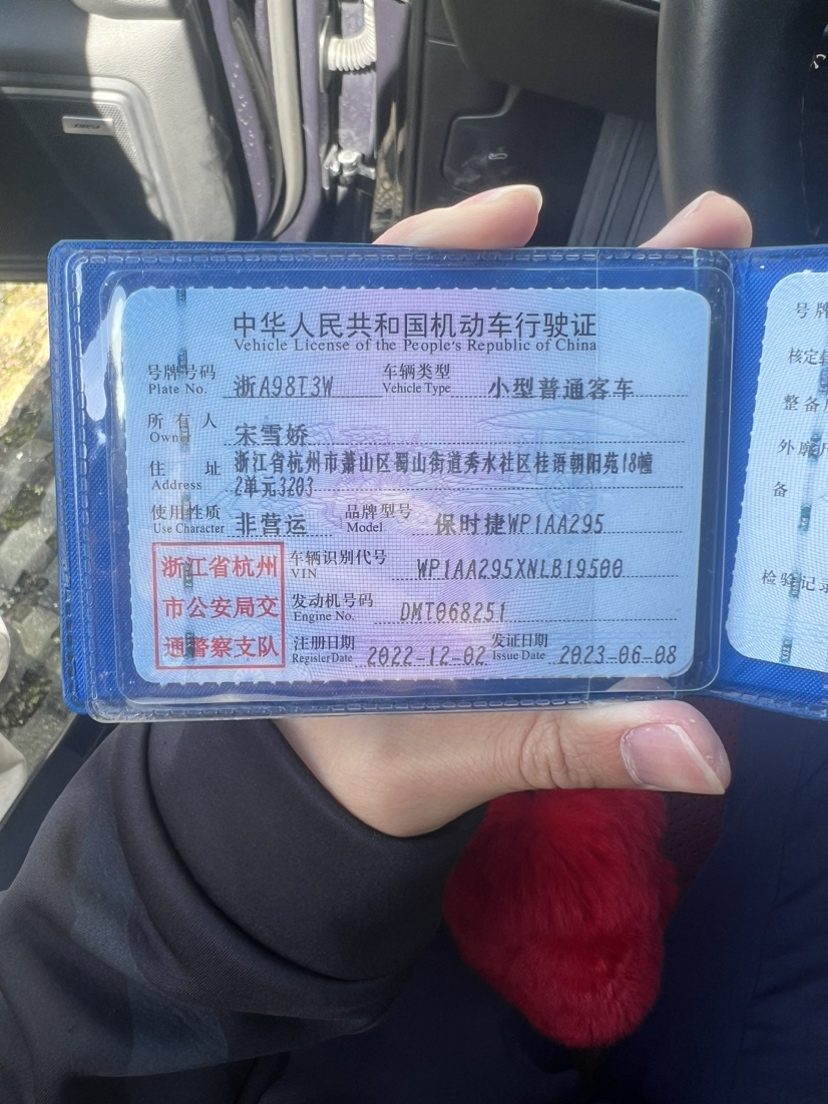 中华人民共和国机动车行驶证
Vehicle License of the People's Republic of China
号牌号码 浙A98T3W 车辆类型 小型普通客车
Plate No. Vehicle Type
所有人 宋雪娇
Owner
住址 浙江省杭州市萧山区蜀山街道秀水社区桂语朝阳苑18幢
Address 2单元3203
使用性质 非营运 品牌型号 保时捷WP1AA295
Use Character Model
浙江省杭州
市公安局交
通警察支队
车辆识别代号 WP1AA295XNLB19500
VIN
发动机号码 DMT068251
Engine No.
注册日期 2022-12-02 发证日期 2023-06-08
Register Date Issue Date
号牌
核定
整备
外廓
备
检验记录